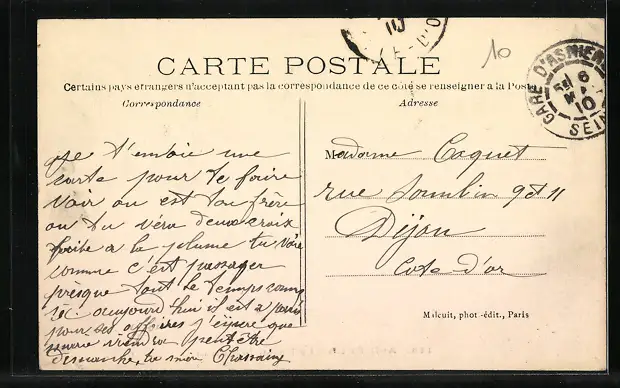 10
CÔTE-D'O
GARE D'ASNIÈRE
6
10
SEIN
CARTE POSTALE
Certains pays étrangers n'acceptant pas la correspondance de ce côté se renseigner à la Poste
Correspondance
Adresse
je t'envoie une
carte pour te faire
voir ou est ton frère
ou tu véra deux croix
faite a la plume tu
comme c'est passager
presque tout le temps
aujourd'hui il est a
pour ses affaires j'espere que
peut être
dimanche
Madame Coquet
rue 9 et 11
Dijon
Cote d'or
Malcuit, phot.-édit., Paris